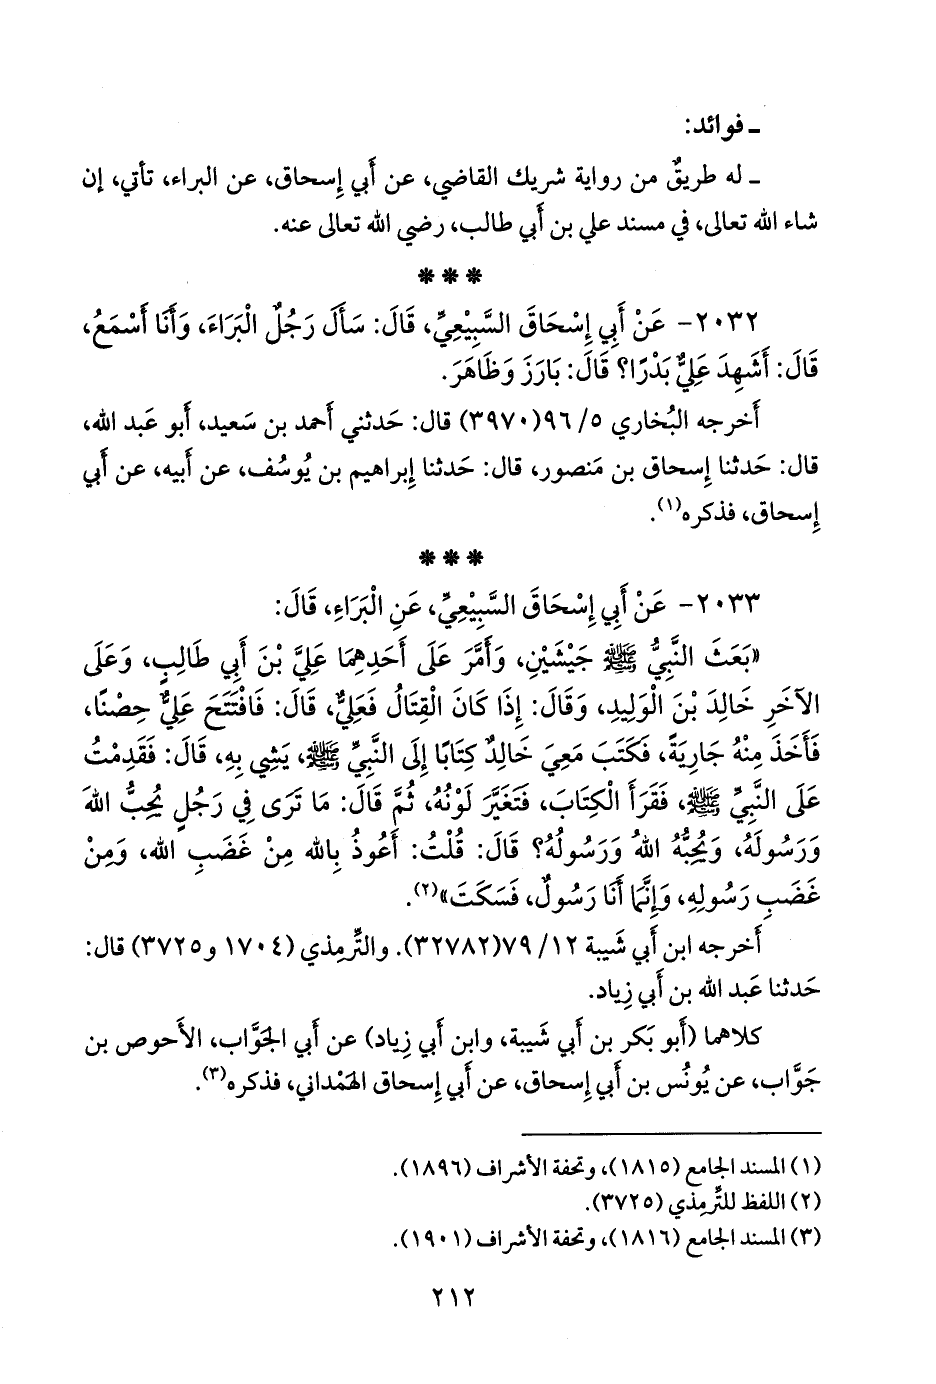 ـ فوائد:
ـ له طريقٌ من رواية شريك القاضي، عن أَبي إِسحاق، عن البراء، تأتي، إن
شاء الله تعالى، في مسند علي بن أَبي طالب، رضي الله تعالى عنه.
***
٢٠٣٢- عَنْ أَبِي إِسْحَاقَ السَّبِيْعِيِّ، قَالَ: سَأَلَ رَجُلٌ الْبَرَاءَ، وَأَنَا أَسْمَعُ،
قَالَ: أَشَهِدَ عَلِيٌّ بَدْرًا؟ قَالَ: بَارَزَ وَظَاهَرَ.
أَخرجه البُخاري ٥/ ٩٦(٣٩٧٠) قال: حَدثني أَحمد بن سَعيد، أَبو عَبد الله،
قال: حَدثنا إِسحاق بن مَنصور، قال: حَدثنا إِبراهيم بن يُوسُف، عن أَبيه، عن أَبي
إِسحاق، فذكره(١).
***
٢٠٣٣- عَنْ أَبِي إِسْحَاقَ السَّبِيْعِيِّ، عَنِ الْبَرَاءِ، قَالَ:
«بَعَثَ النَّبِيُّ ﷺ جَيْشَيْنِ، وَأَمَّرَ عَلَى أَحَدِهِمَا عَلِيَّ بْنَ أَبِي طَالِبٍ، وَعَلَى
الآخَرِ خَالِدَ بْنَ الْوَلِيدِ، وَقَالَ: إِذَا كَانَ الْقِتَالُ فَعَلِيٌّ، قَالَ: فَافْتَتَحَ عَلِيٌّ حِصْنًا،
فَأَخَذَ مِنْهُ جَارِيَةً، فَكَتَبَ مَعِيَ خَالِدٌ كِتَابًا إِلَى النَّبِيِّ ﷺ، يَشِي بِهِ، قَالَ: فَقَدِمْتُ
عَلَى النَّبِيِّ ﷺ، فَقَرَأَ الْكِتَابَ، فَتَغَيَّرَ لَوْنُهُ، ثُمَّ قَالَ: مَا تَرَى فِي رَجُلٍ يُحِبُّ اللهَ
وَرَسُولَهُ، وَيُحِبُّهُ اللهُ وَرَسُولُهُ؟ قَالَ: قُلْتُ: أَعُوذُ بِالله مِنْ غَضَبِ الله، وَمِنْ
غَضَبِ رَسُولِهِ، وَإِنَّمَا أَنَا رَسُولٌ، فَسَكَتَ»(٢).
أَخرجه ابن أَبي شَيبة ١٢/ ٧٩(٣٢٧٨٢). والتِّرمِذي (١٧٠٤ و٣٧٢٥) قال:
حَدثنا عَبد الله بن أَبي زِياد.
كلاهما (أَبو بَكر بن أَبي شَيبة، وابن أَبي زِياد) عن أَبي الجَوَّاب، الأَحوص بن
جَوَّاب، عن يُونُس بن أَبي إِسحاق، عن أَبي إِسحاق الهَمْداني، فذكره(٣).
(١) المسند الجامع (١٨١٥)، وتحفة الأشراف (١٨٩٦).
(٢) اللفظ للتِّرمِذي (٣٧٢٥).
(٣) المسند الجامع (١٨١٦)، وتحفة الأشراف (١٩٠١).
٢١٢